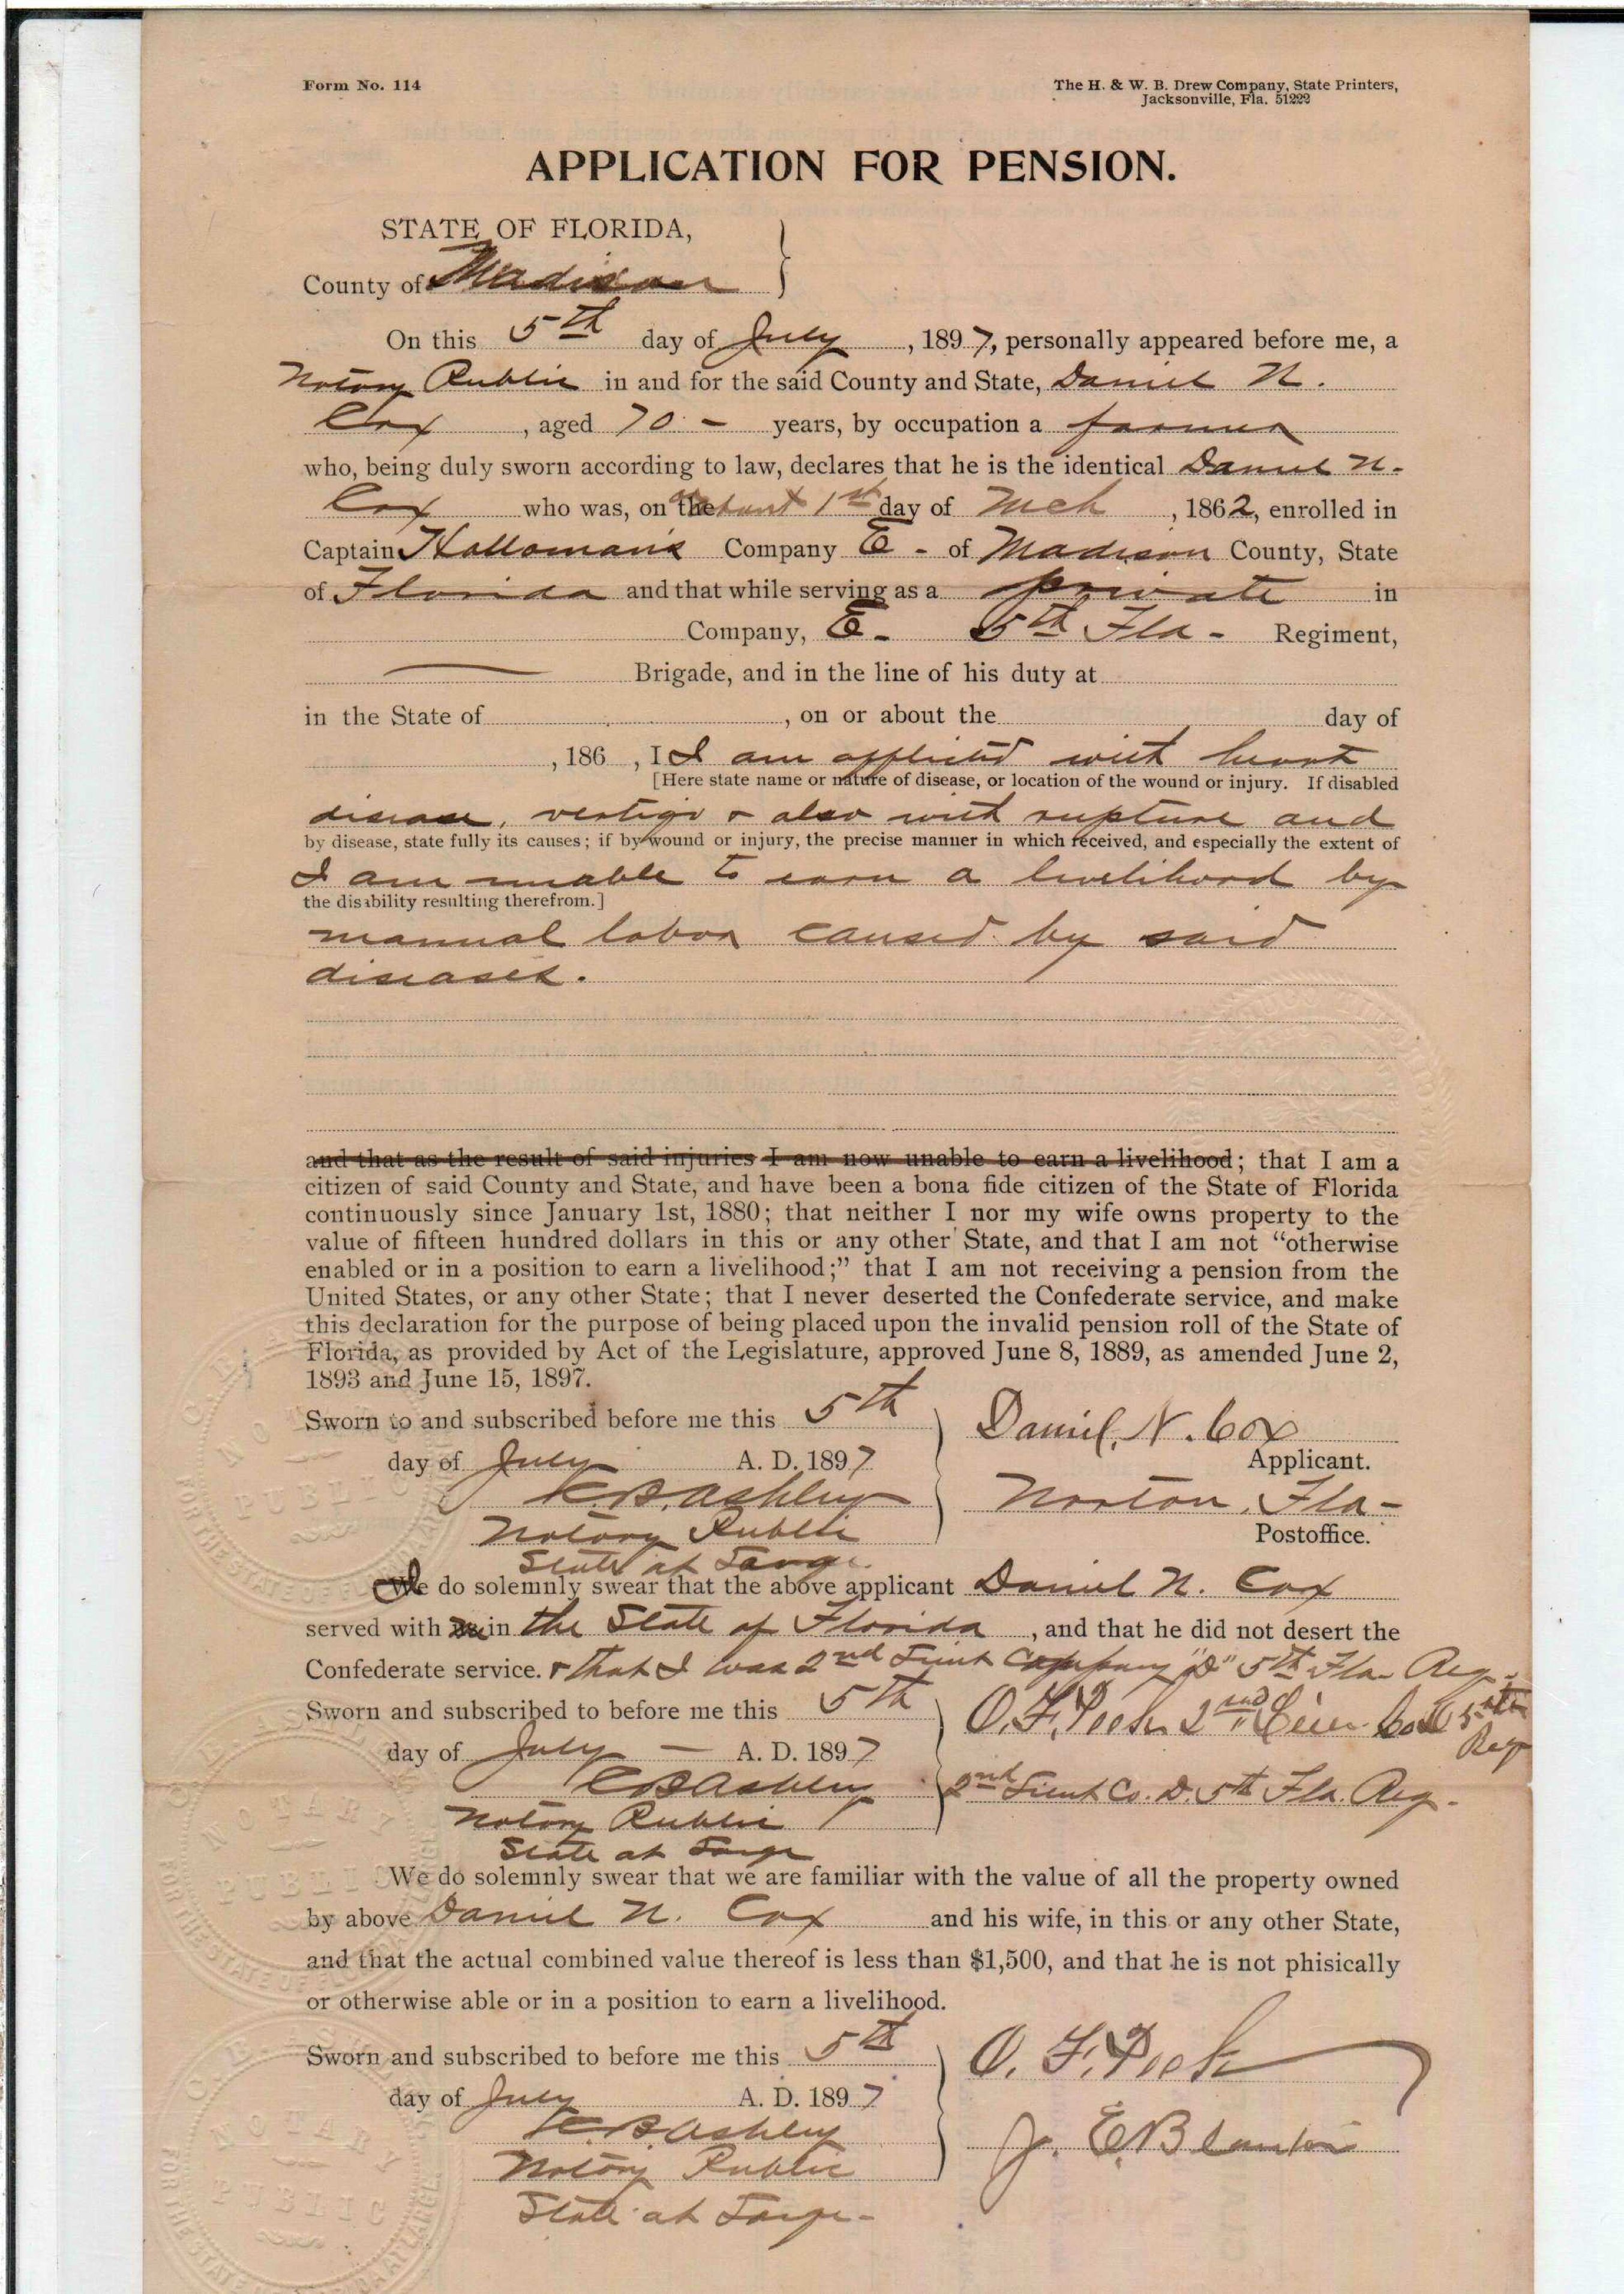 Form No. 114
The H. & W. B. Drew Company, State Printers,
Jacksonville, Fla. 51222
APPLICATION FOR PENSION.
STATE OF FLORIDA,
County of Madison
On this 5th day of July, 1897, personally appeared before me, a
Notary Public in and for the said County and State, Daniel N.
Cox, aged 70 - years, by occupation a farmer
who, being duly sworn according to law, declares that he is the identical Daniel N.
Cox who was, on the about 1st day of Mch, 1862, enrolled in
Captain Halloman's Company E - of Madison County, State
of Florida and that while serving as a private in
Company, E - 5th Fla - Regiment,
Brigade, and in the line of his duty at
in the State of , on or about the day of
, 186 , I I am afflicted with heart
[Here state name or nature of disease, or location of the wound or injury. If disabled
disease, vertigo & also with rupture and
by disease, state fully its causes; if by wound or injury, the precise manner in which received, and especially the extent of
I am unable to earn a livelihood by
the disability resulting therefrom.]
manual labor caused by said
diseases.
and that as the result of said injuries I am now unable to earn a livelihood; that I am a
citizen of said County and State, and have been a bona fide citizen of the State of Florida
continuously since January 1st, 1880; that neither I nor my wife owns property to the
value of fifteen hundred dollars in this or any other State, and that I am not "otherwise
enabled or in a position to earn a livelihood;" that I am not receiving a pension from the
United States, or any other State; that I never deserted the Confederate service, and make
this declaration for the purpose of being placed upon the invalid pension roll of the State of
Florida, as provided by Act of the Legislature, approved June 8, 1889, as amended June 2,
1893 and June 15, 1897.
Sworn to and subscribed before me this 5th
Daniel N. Cox
day of July A. D. 1897
Applicant.
C.B. Ashley
Norton, Fla-
Notary Public
Postoffice.
State at Large.
I do solemnly swear that the above applicant Daniel N. Cox
served with in the State of Florida, and that he did not desert the
Confederate service. & that I was 2nd Lieut Company "D" 5th Fla Reg.
Sworn and subscribed to before me this 5th
O. F. 2nd Co D 5th
Reg
day of July - A. D. 1897
C B Ashley
2nd Lieut Co. D. 5th Fla. Reg.
Notary Public
State at Large
We do solemnly swear that we are familiar with the value of all the property owned
by above Daniel N. Cox and his wife, in this or any other State,
and that the actual combined value thereof is less than $1,500, and that he is not phisically
or otherwise able or in a position to earn a livelihood.
Sworn and subscribed to before me this 5th
O. F.
day of July A. D. 1897
C. B. Ashley
J. E.
Notary Public
State at Large-
C. B. ASHLEY
NOTARY
PUBLIC
FOR THE STATE OF FLORIDA AT LARGE